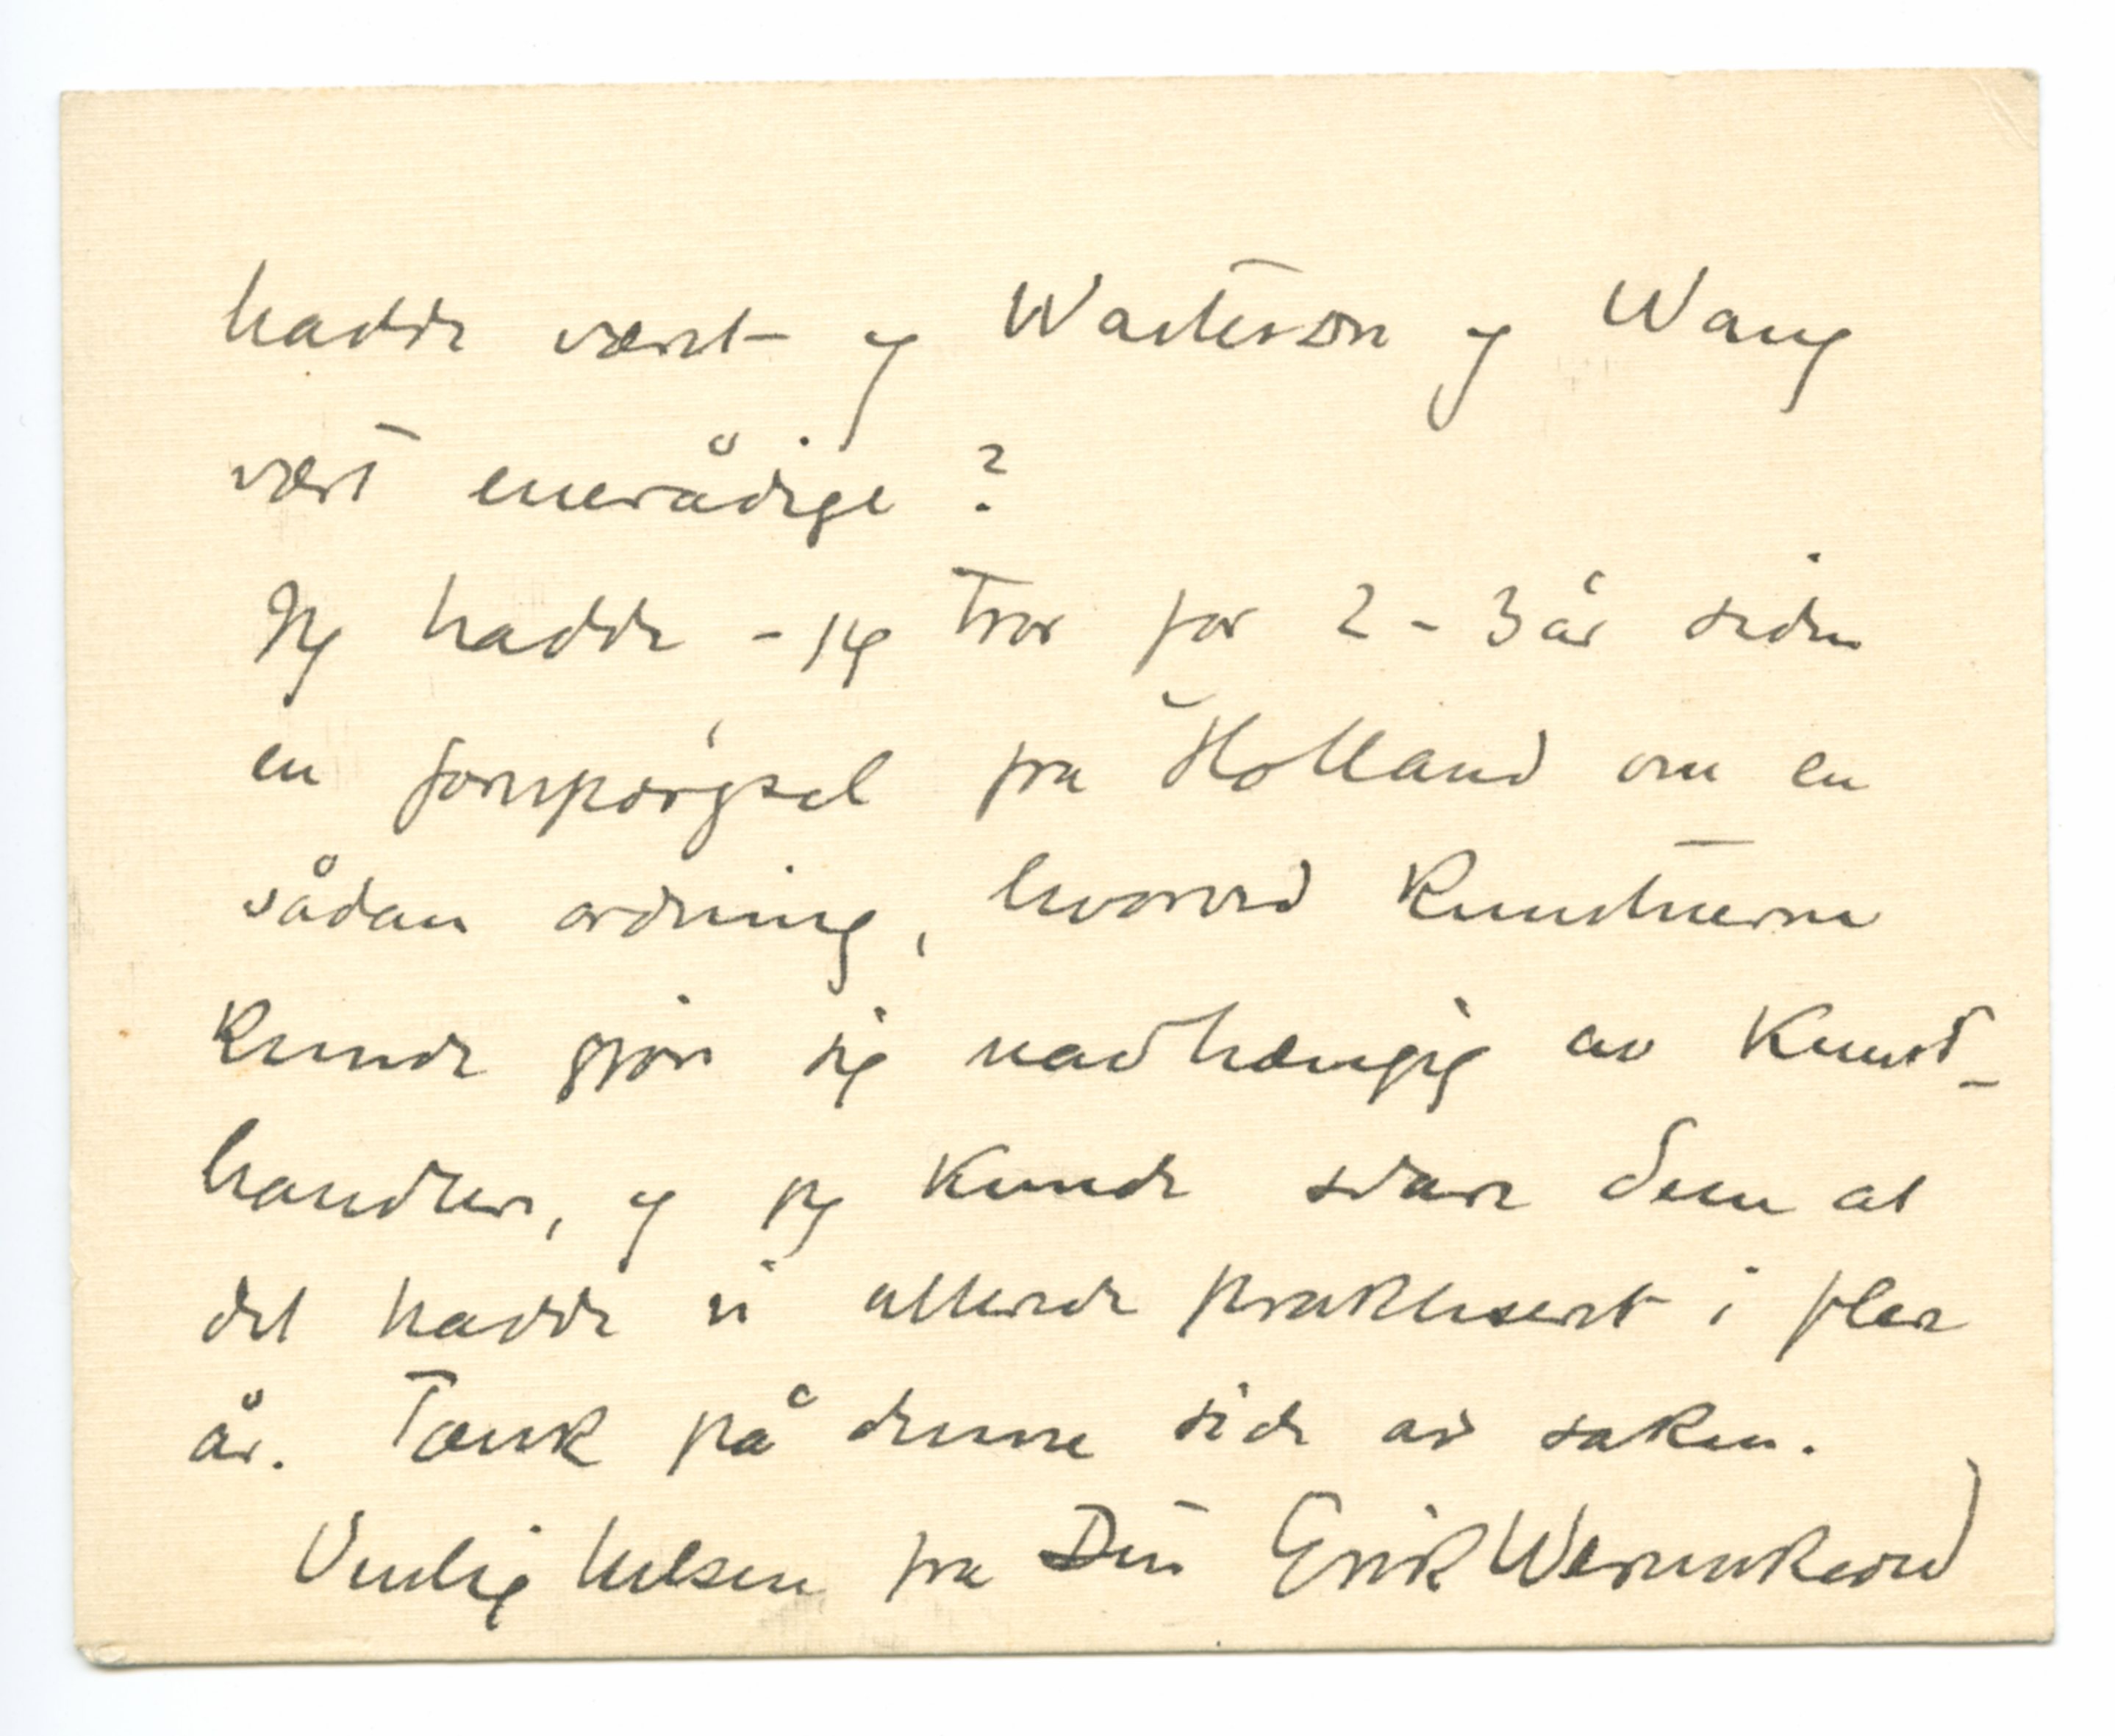 hadde været og Watterson og Wang
vært enerådige?
Jeg hadde – jeg tror for 2 – 3 år siden
en forespørgsel fra Holland om en
sådan ordning, hvorved kunstnerne
kunde gjøre sig uavhængig av kunst-
handlere, og jeg kunde svare dem at
det hadde vi allerede praktisert i flere
år. Tænk på denne side av saken.
Venlig hilsen fra Din Erik Werenskiold